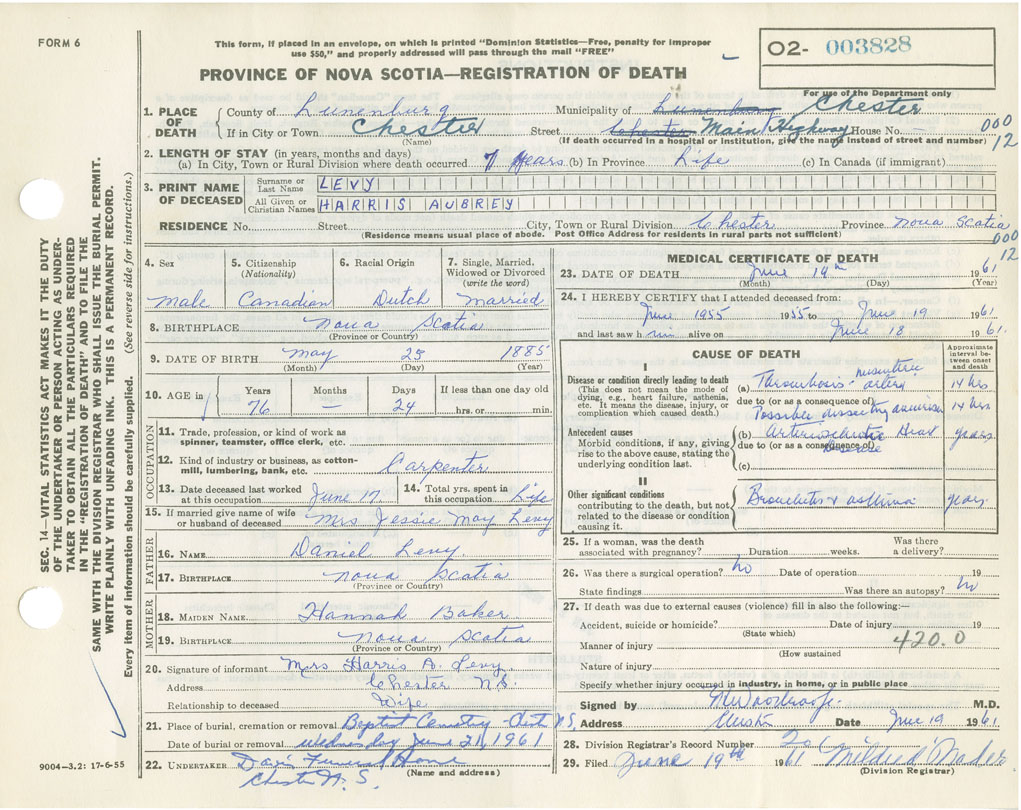 FORM 6
This form, if placed in an envelope, on which is printed "Dominion Statistics—Free, penalty for improper
use $50," and properly addressed will pass through the mail "FREE"
O2- 003828
For use of the Department only
PROVINCE OF NOVA SCOTIA—REGISTRATION OF DEATH
1. PLACE OF DEATH
County of Lunenburg Municipality of Lunenburg Chester
If in City or Town Chester Street Chester Main Highway House No. — 000
(Name) (If death occurred in a hospital or institution, give the name instead of street and number) 12
2. LENGTH OF STAY (in years, months and days)
(a) In City, Town or Rural Division where death occurred 7 years (b) In Province Life (c) In Canada (if immigrant)
3. PRINT NAME OF DECEASED
Surname or Last Name LEVY
All Given or Christian Names HARRIS AUBREY
RESIDENCE No. Street City, Town or Rural Division Chester Province Nova Scotia
(Residence means usual place of abode. Post Office Address for residents in rural parts not sufficient) 000
12
4. Sex Male
5. Citizenship (Nationality) Canadian
6. Racial Origin Dutch
7. Single, Married, Widowed or Divorced (write the word) Married
8. BIRTHPLACE Nova Scotia
(Province or Country)
9. DATE OF BIRTH May 25 1885
(Month) (Day) (Year)
10. AGE in Years Months Days If less than one day old
76 — 24 hrs. or min.
OCCUPATION
11. Trade, profession, or kind of work as
spinner, teamster, office clerk, etc.
12. Kind of industry or business, as cotton-
mill, lumbering, bank, etc. Carpenter
13. Date deceased last worked
at this occupation June 17
14. Total yrs. spent in
this occupation Life
15. If married give name of wife
or husband of deceased Mrs Jessie May Levy
FATHER
16. NAME Daniel Levy
17. BIRTHPLACE Nova Scotia
(Province or Country)
MOTHER
18. MAIDEN NAME Hannah Baker
19. BIRTHPLACE Nova Scotia
(Province or Country)
20. Signature of informant Mrs Harris A. Levy
Address Chester N.S.
Relationship to deceased Wife
21. Place of burial, cremation or removal Baptist Cemetry - N.S.
Date of burial or removal Wednesday June 21, 1961
22. UNDERTAKER Davis Funeral Home
(Name and address)
Chester N.S.
9004—3.2: 17-6-55
MEDICAL CERTIFICATE OF DEATH
23. DATE OF DEATH June 19th 1961
(Month) (Day) (Year)
24. I HEREBY CERTIFY that I attended deceased from:
June 1955 1955 to June 19 1961
and last saw him alive on June 18 1961.
CAUSE OF DEATH
Approximate interval between onset and death
I
Disease or condition directly leading to death
(This does not mean the mode of
dying, e.g., heart failure, asthenia,
etc. It means the disease, injury, or
complication which caused death.)
(a) Thrombosis mesenteric artery 14 hrs
due to (or as a consequence of)
Possible dissecting 14 hrs
Antecedent causes
Morbid conditions, if any, giving
rise to the above cause, stating the
underlying condition last.
(b) Arteriosclerotic Heart disease years
due to (or as a consequence of)
(c)
II
Other significant conditions
contributing to the death, but not
related to the disease or condition
causing it.
Bronchitis & asthma years
25. If a woman, was the death
associated with pregnancy? Duration weeks. Was there
a delivery?
26. Was there a surgical operation? no Date of operation 19
State findings Was there an autopsy? no
27. If death was due to external causes (violence) fill in also the following:—
Accident, suicide or homicide? Date of injury 19
(State which)
Manner of injury 420.0
(How sustained
Nature of injury
Specify whether injury occurred in industry, in home, or in public place
Signed by M.D.
Address Chester Date June 19 1961.
28. Division Registrar's Record Number
29. Filed June 19th 1961 Mildred Mader
(Division Registrar)
SEC. 14—VITAL STATISTICS ACT MAKES IT THE DUTY
OF THE UNDERTAKER OR PERSON ACTING AS UNDER-
TAKER TO OBTAIN ALL THE PARTICULARS REQUIRED
IN THE "REGISTRATION OF DEATH" AND TO FILE THE
SAME WITH THE DIVISION REGISTRAR WHO SHALL ISSUE THE BURIAL PERMIT.
WRITE PLAINLY WITH UNFADING INK. THIS IS A PERMANENT RECORD.
Every item of information should be carefully supplied. (See reverse side for instructions.)